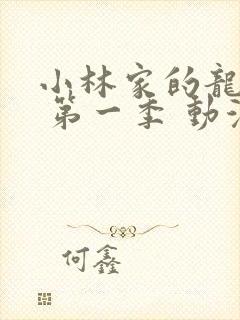 小林家的龍
第一季 動漫
何鑫